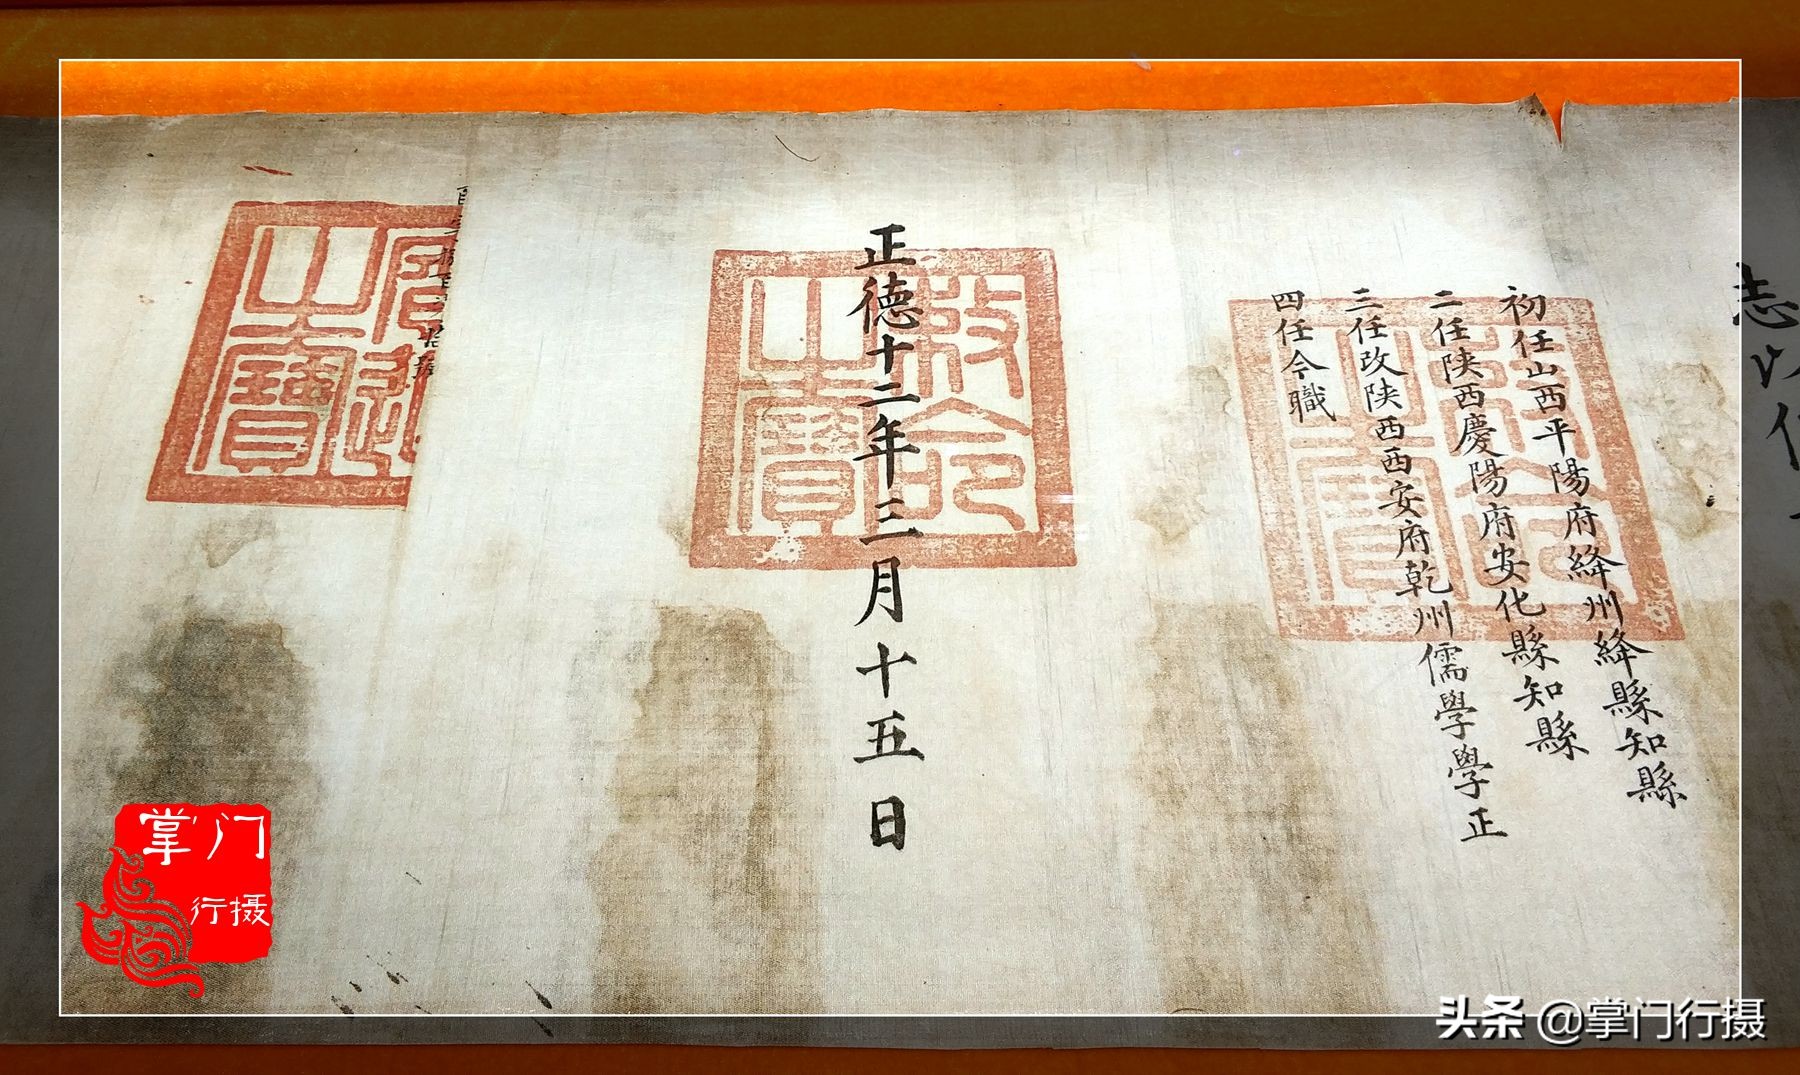 志以
初任山西平陽府絳州絳縣知縣
二任陕西慶陽府安化縣知縣
三任改陕西西安府乾州儒學學正
四任令職
敕命之寶
正德十二年三月十五日
敕命之寶
之寶
掌门
行摄
头条 @掌门行摄